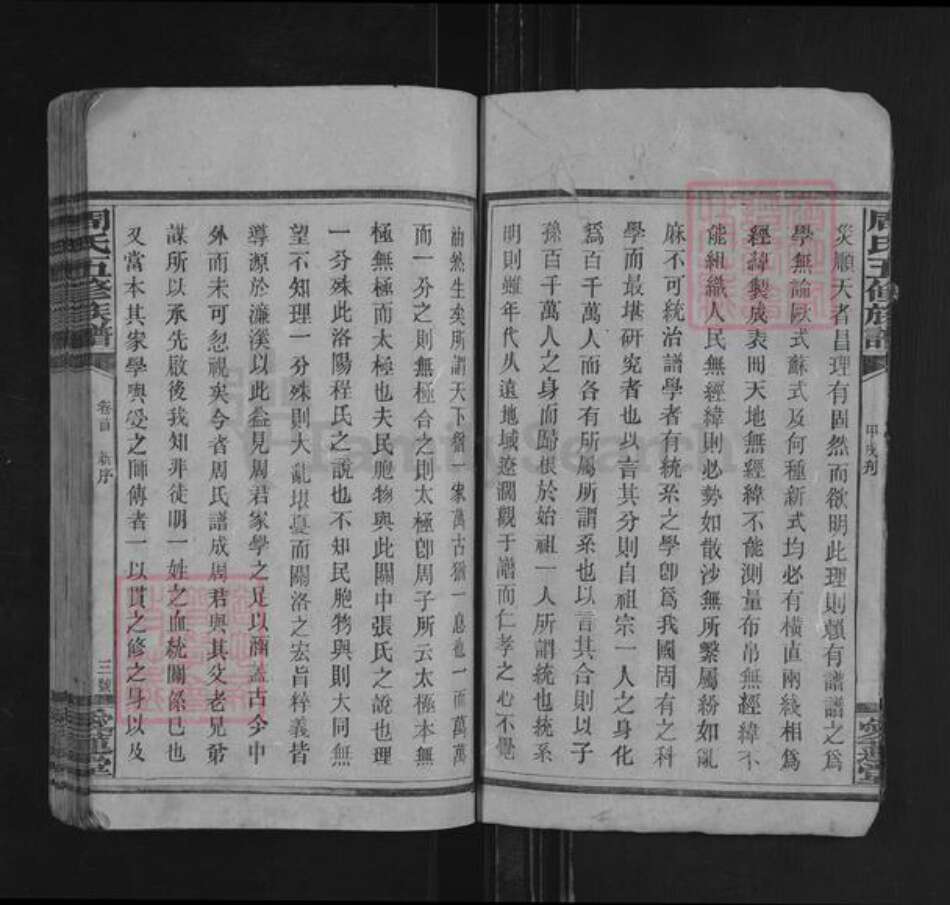 周氏五修族譜
甲戌刋
愛蓮堂
災順天者昌理有固然而欲明此理則賴有譜譜之爲
學無論歐式蘇式及何種新式均必有橫直兩綫相爲
經緯製成表冊天地無經緯不能測量布帛無經緯不
能組織人民無經緯則必勢如散沙無所繫屬紛如亂
麻不可統治譜學者有統系之學卽爲我國固有之科
學而最堪硏究者也以言其分則自祖宗一人之身化
爲百千萬人而各有所屬所謂系也以言其合則以子
孫百千萬人之身而歸根於始祖一人所謂統也統系
明則雖年代久遠地域遼濶觀于譜而仁孝之心不覺
油然生矣所謂天下猶一家萬古猶一息也一而萬萬
而一分之則無極合之則太極卽周子所云太極本無
極無極而太極也夫民胞物與此關中張氏之說也理
一分殊此洛陽程氏之說也不知民胞物與則大同無
望不知理一分殊則大亂堪憂而關洛之宏旨粹義皆
導源於濂溪以此益見周君家學之足以涵蓋古今中
外而未可忽視矣今者周氏譜成周君與其父老兄弟
謀所以承先啟後我知非徒明一姓之血統關係已也
又當本其家學與受之師傳者一以貫之修之身以及
周氏五修族譜
卷首 新序
三號
愛蓮堂
FamilySearch